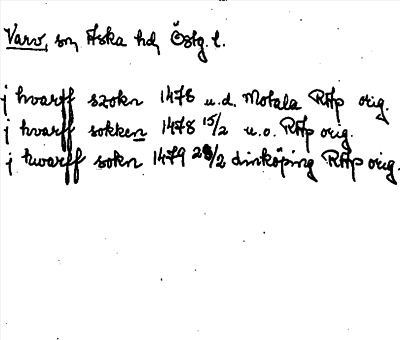 Varv, sn, Aska hd, Östg. l.
j hvarff szokn 1478 u.d. Motala RAp orig.
j hvarff sokken 1478 15/2 u.o. RAp orig.
j hwarff sokn 1479 /2 Linköping RAp orig.